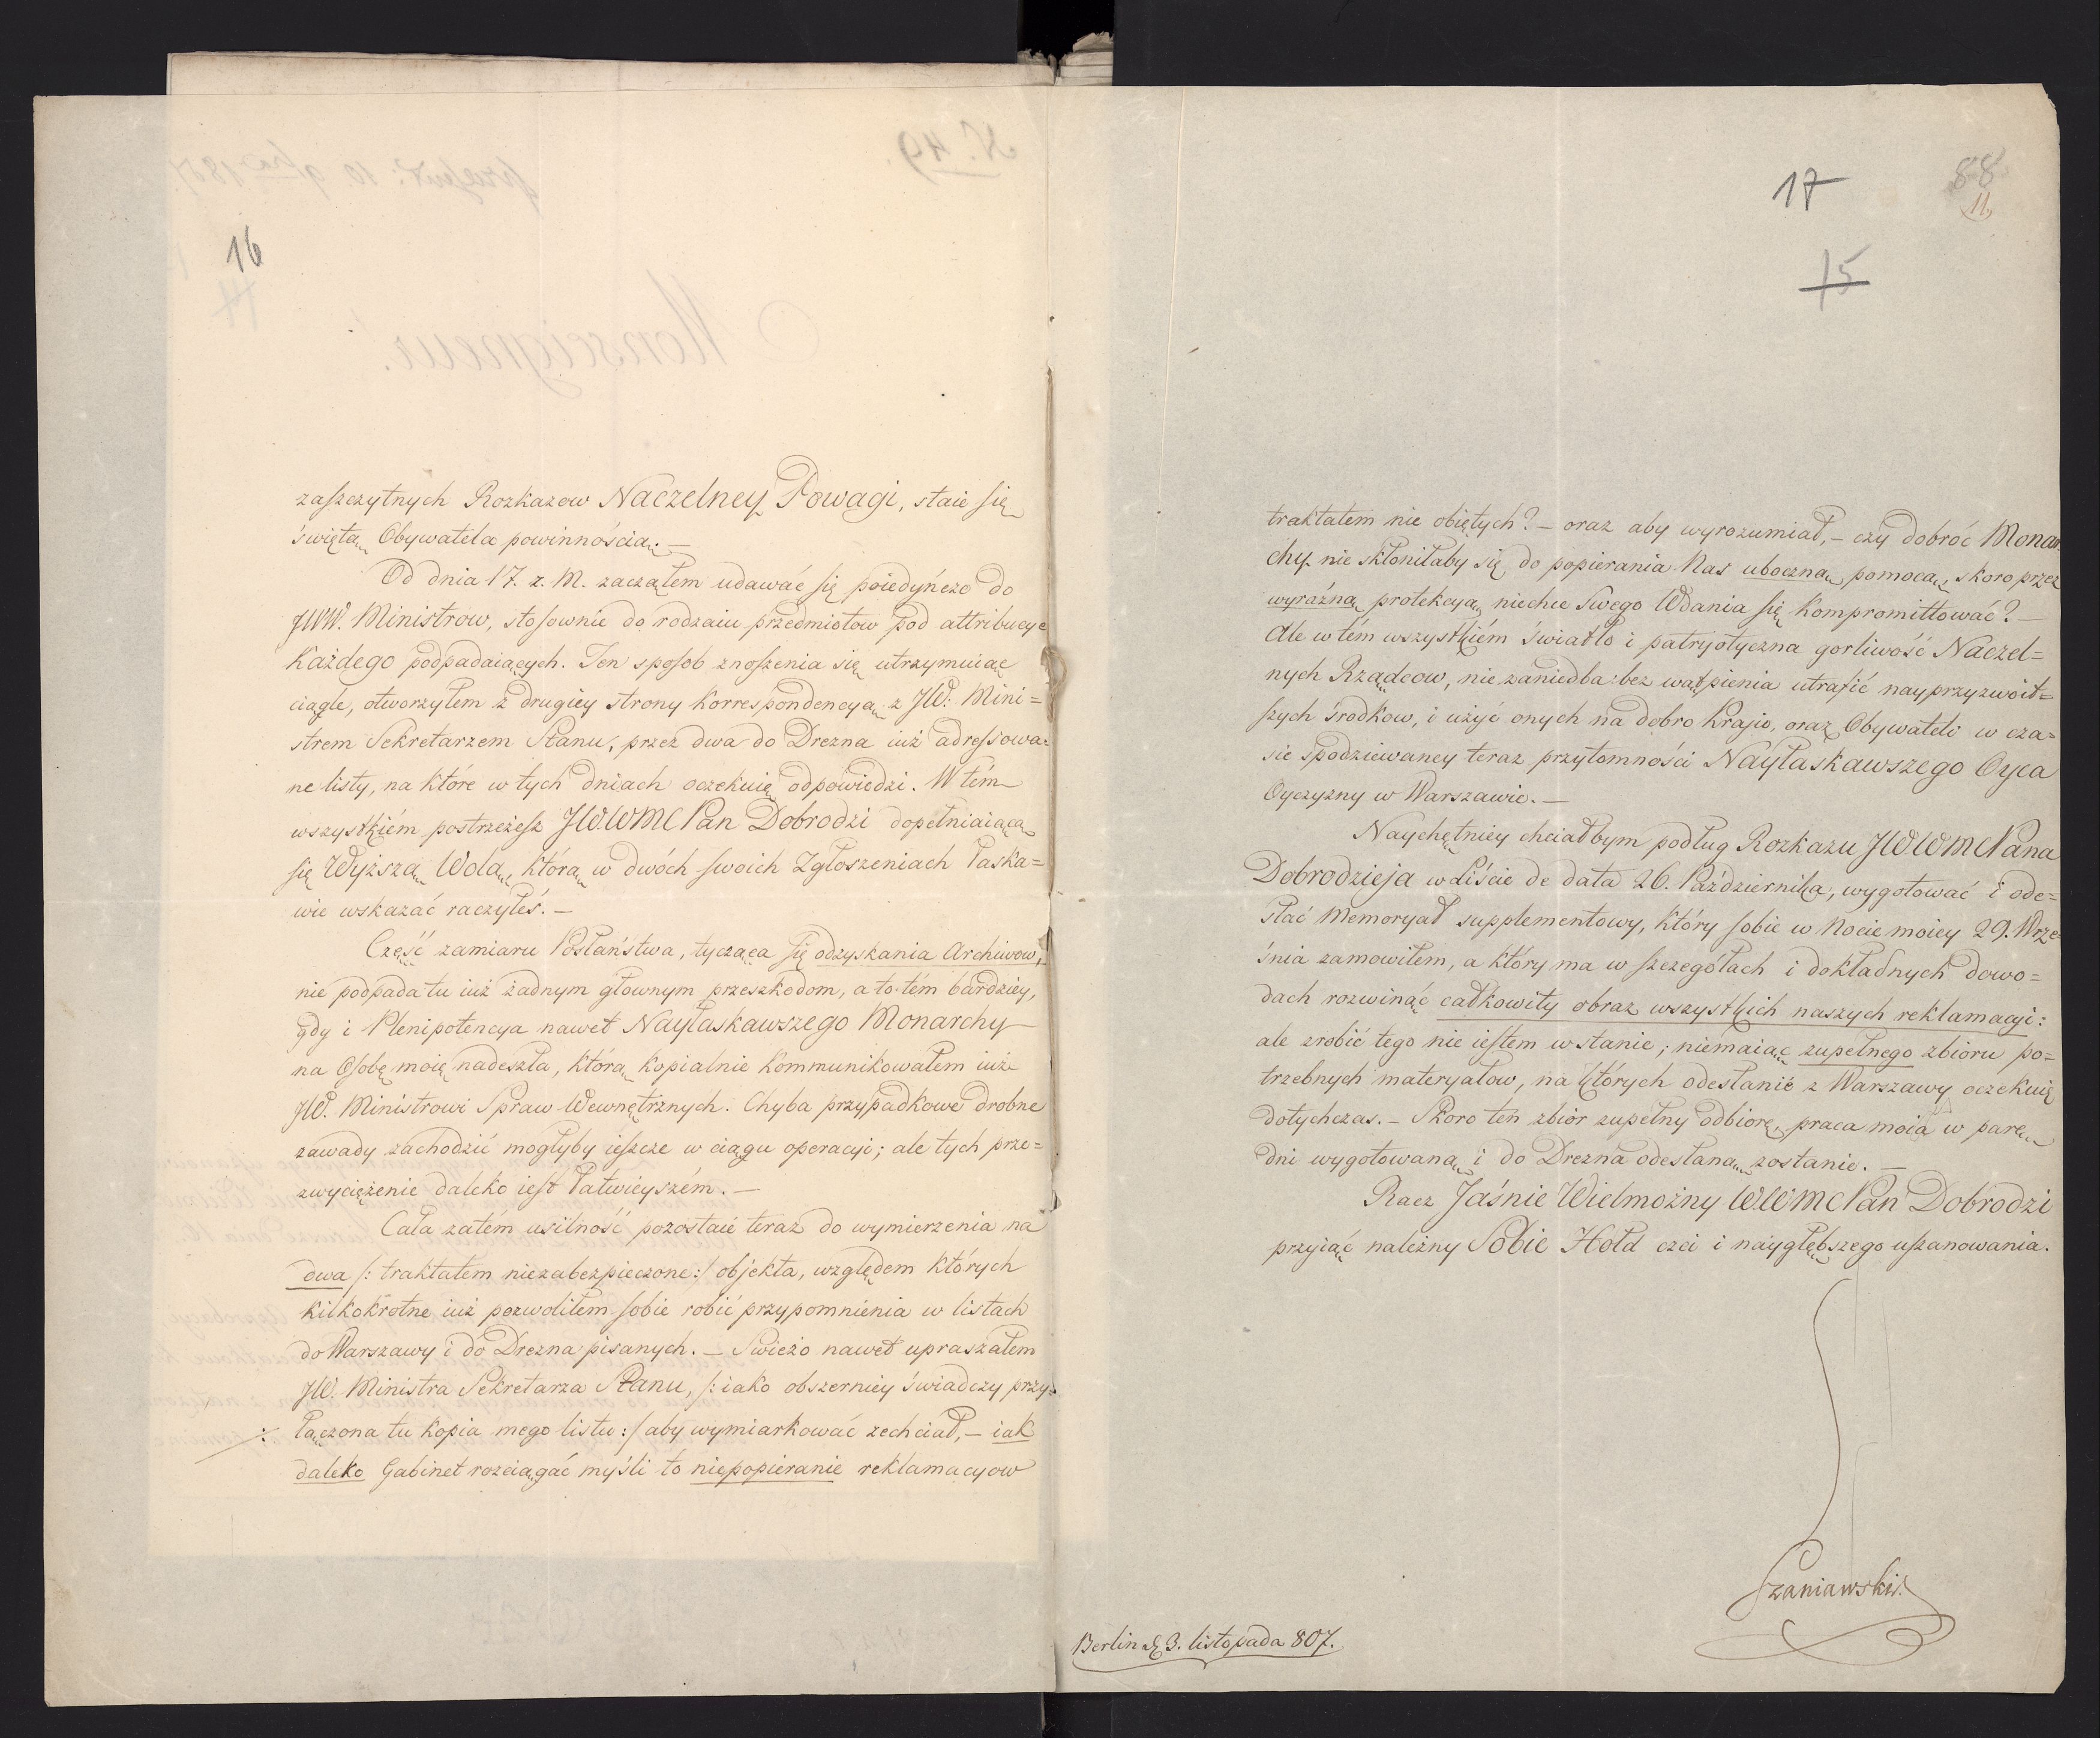 16
14
zaſzczytnych Rozkazow Naczelney Powagi, staie się
świętą Obywatela powinnością. —
Od dnia 17. z. M. zacząłem udawać się poiedyńczo do
JWW. Ministrow, stosownie do rodzaiu przedmiotow pod attribucye
Każdego podpadaiących. Ten sposob znoszenia się utrzymuiąc
ciągle, otworzyłem z drugiey strony Korrespondencyą z JW: Mini=
strem Sekretarzem Stanu, przez dwa do Drezna iuż adreſsowa=
ne listy, na które w tych dniach oczekuię odpowiedzi. W tém
wszystkiém postrzeżesz JWWMC Pan Dobrodzi dopełniaiącą
się Wyższą Wolą, którą w dwóch swoich Zgłoszeniach łaska=
wie wskazać raczyłeś. —
Część zamiaru Posłaństwa, tycząca się odzyskania Archiwow,
nie podpada tu iuż żadnym głownym przeszkodom, a to tém bardziey,
gdy i Plenipotencya nawet Nayłaskawszego Monarchy
na Osobę moię nadeszła, którą kopialnie kommunikowałem iuż
JW. Ministrowi Spraw Wewnętrznych. Chyba przypadkowe drobne
zawady zachodzić mogłyby ieſzcze w ciągu operacyi; ale tych prze=
zwyciężenie daleko ieſt łatwieyszém. —
Cała zatém usilność pozostaie teraz do wymierzenia na
dwa /: traktatem niezabezpieczone :/ objekta, względem których
kilkokrotne iuż pozwoliłem sobie robić przypomnienia w listach
do Warszawy i do Drezna pisanych. — Swieżo nawet upraszałem
JW. Ministra Sekretarza Stanu, /: iako obszerniey świadczy przy=
łączona tu kopia mego listu :/ aby wymiarkować zechciał, — iak
daleko Gabinet rozciągać myśli to niepopieranie reklamacyow
17
88
11
15
traktatem nie obiętych? — oraz aby wyrozumiał, — czy dobroć Monar
chy nie skłoniłaby się do popierania Nas uboczną pomocą, skoro przez
wyraźną protekcyą niechce Swego Wdania się kompromittować? —
Ale w tém wszystkiém światło i patryotyczna gorliwość Naczel=
nych Rządcow, nie zaniedba bez wątpienia utrafić nayprzyzwoit=
szych środkow, i użyć onych na dobro Kraju, oraz Obywateli w cza=
sie spodziewaney teraz przytomności Nayłaskawszego Oyca
Oyczyzny w Warszawie. —
Naychętniey chciałbym podług Rozkazu JWWMC Pana
Dobrodzieja w Liście de data 26. Października, wygotować i ode=
słać memoryał supplementowy, który sobie w Nocie moiey 29. Wrze=
śnia zamowiłem, a który ma w szczegółach i dokładnych dowo=
dach rozwinąć całkowity obraz wszystkich naszych reklamacyi:
ale zrobić tego nie ieſtem w stanie; niemaiąc zupełnego zbioru po=
trzebnych materyałow, na których odesłanie z Warszawy oczekuię
dotychczas. — Skoro ten zbiór zupełny odbiorę, praca moia w parę
dni wygotowaną i do Drezna odesłaną zostanie. —
Racz Jaśnie Wielmożny WWMC Pan Dobrodzi
przyiąć należny Sobie Hołd czci i naygłębszego uſzanowania.
Szaniawski.
Berlin d. 3. listopada 807.